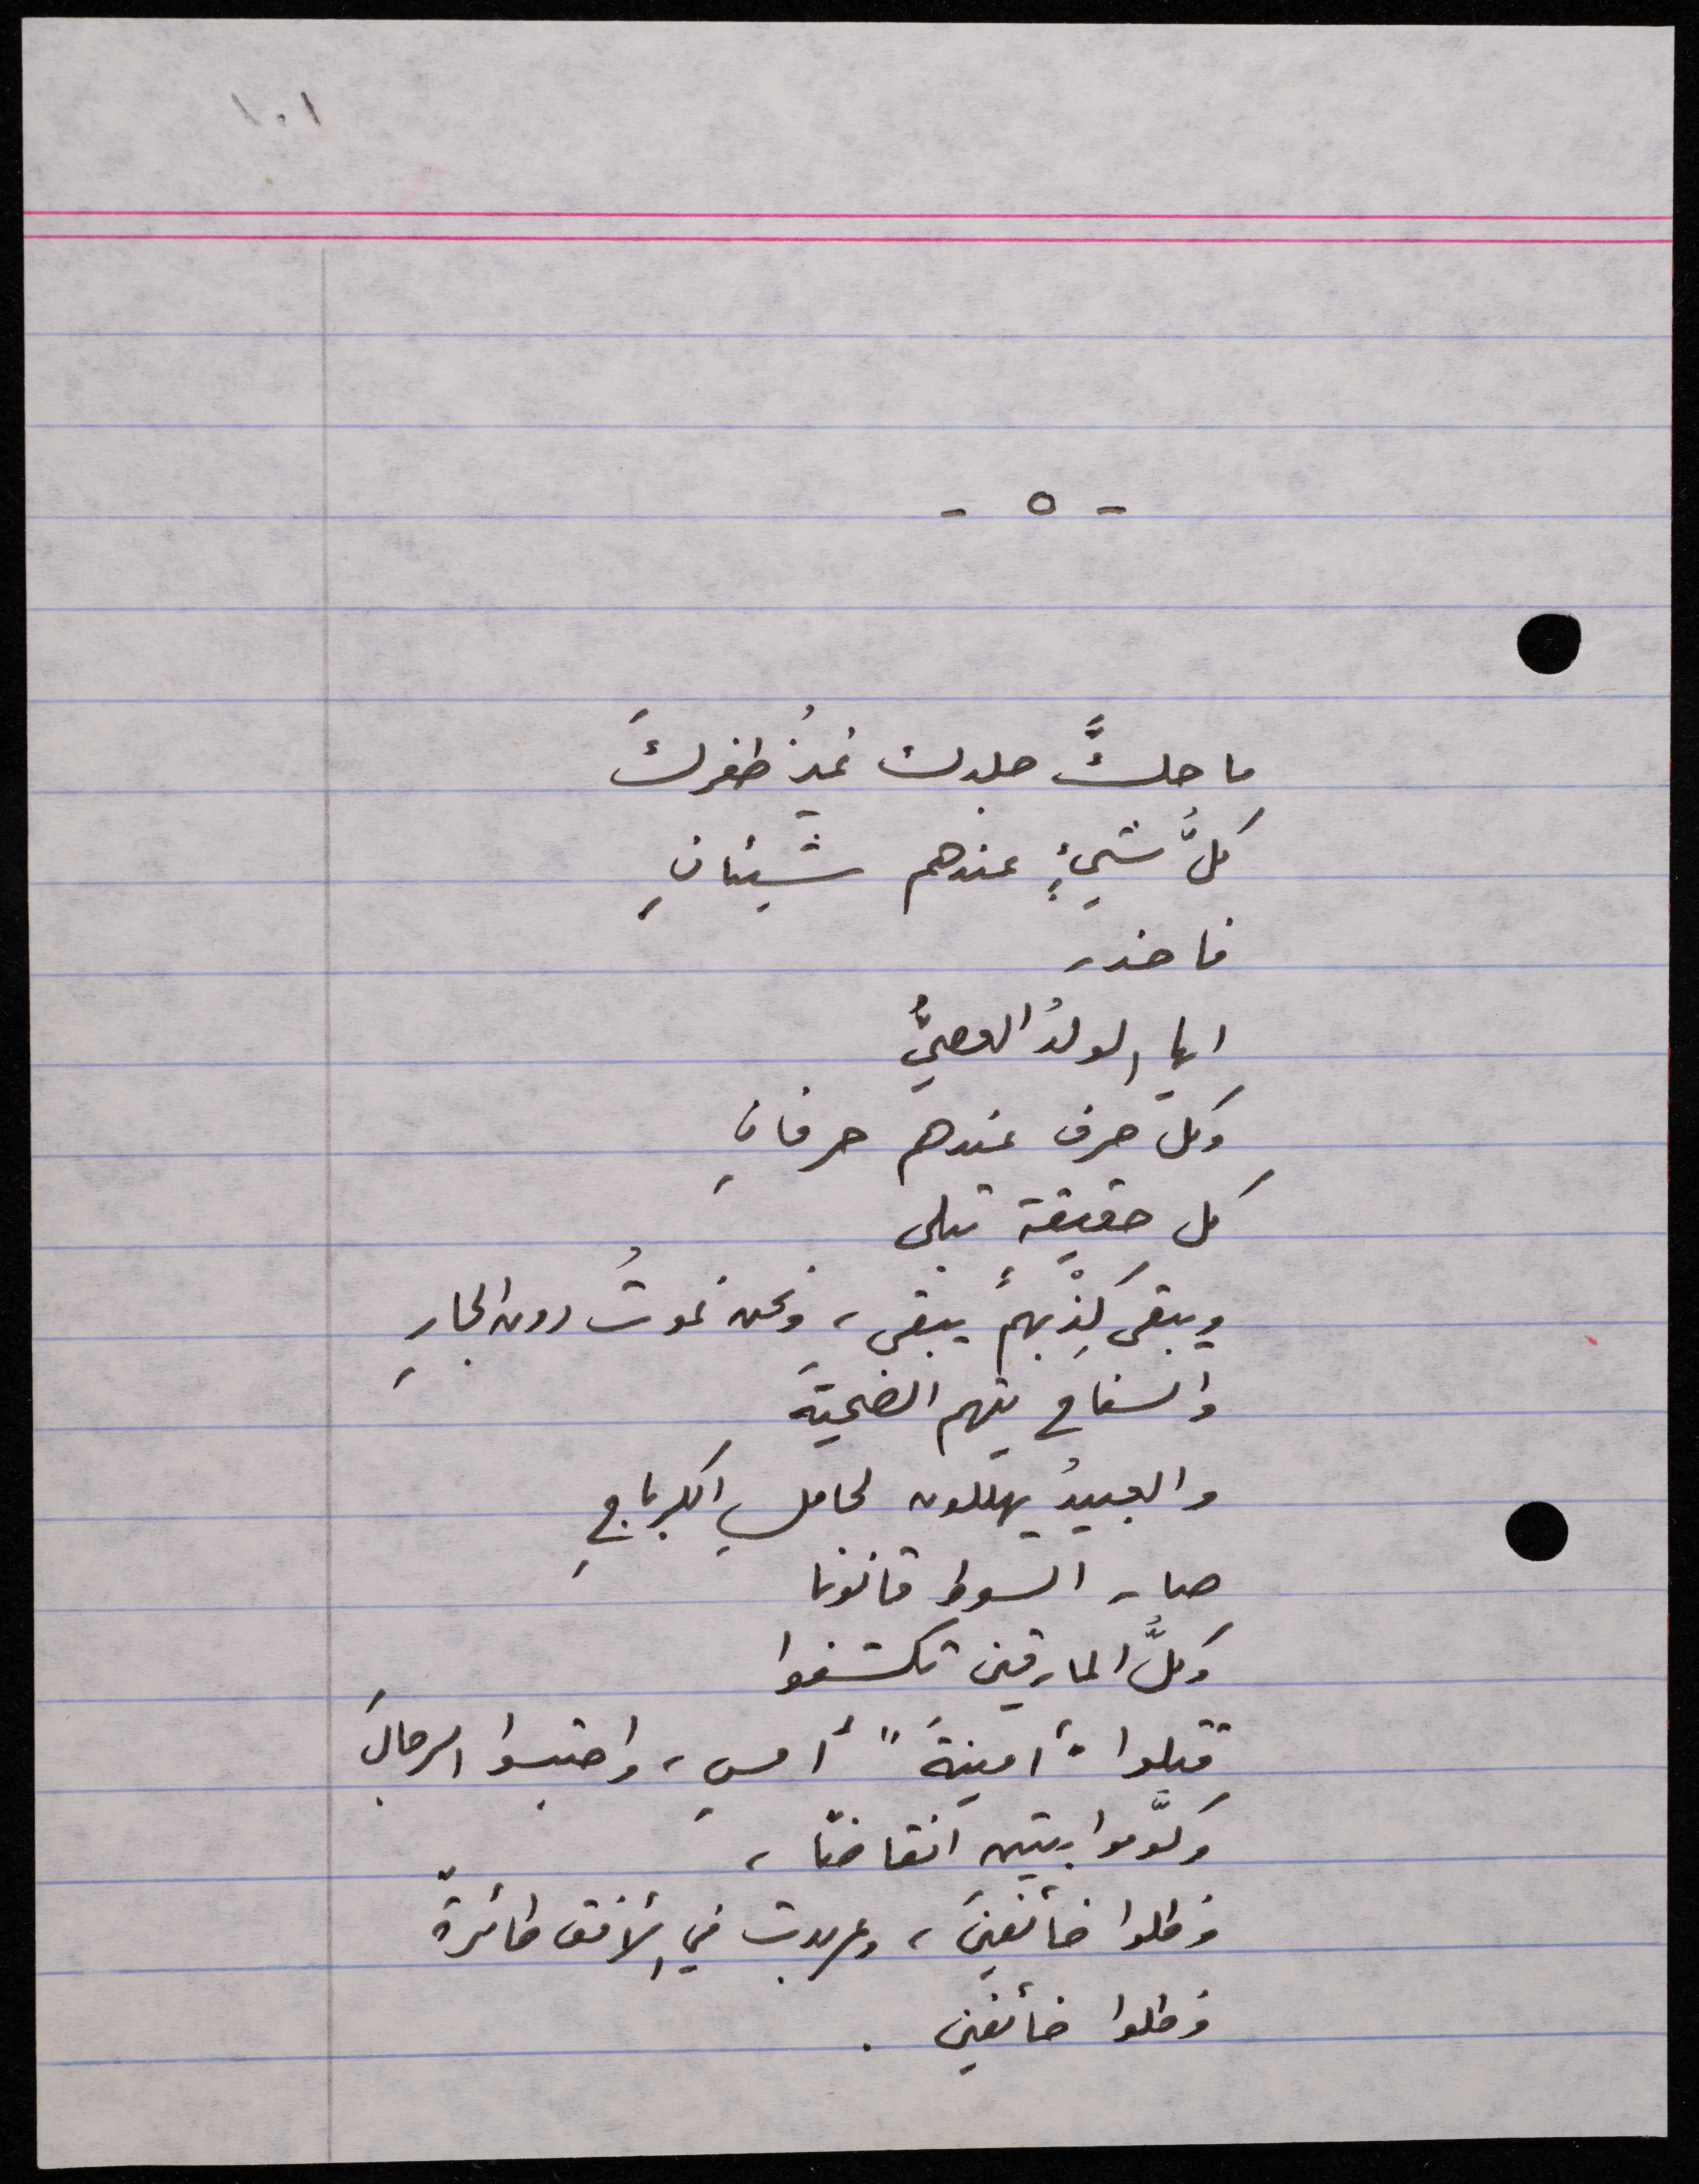 ١٠١
- ٥ -
ما حكَّ جلدك غيرُ ظفركَ
كلُّ شيءٍ عندهم شيئانِ
فاحذر
ايها الولدُ العصيُّ
وكل حرف عندهم حرفانِ
كل حقيقةٍ تبلى
ويبقى كِذْبهمُ يبقى، ونحن نموتُ دون الجارِ
والسفاح يتهم الضحيةَ
والعبيدُ يهللون لحاملِ الكرباجِ
صار السوط قانونا
وكلُّ المارقين تكشفوا
قتلوا "أمينةَ" أمسِ، واحتبسوا الرجالَ
وكوَّموا بيتين انقاضًا،
وظلوا خائفينَ، وعربدت في الأفق طائرةٌ
وظلوا خائفين.